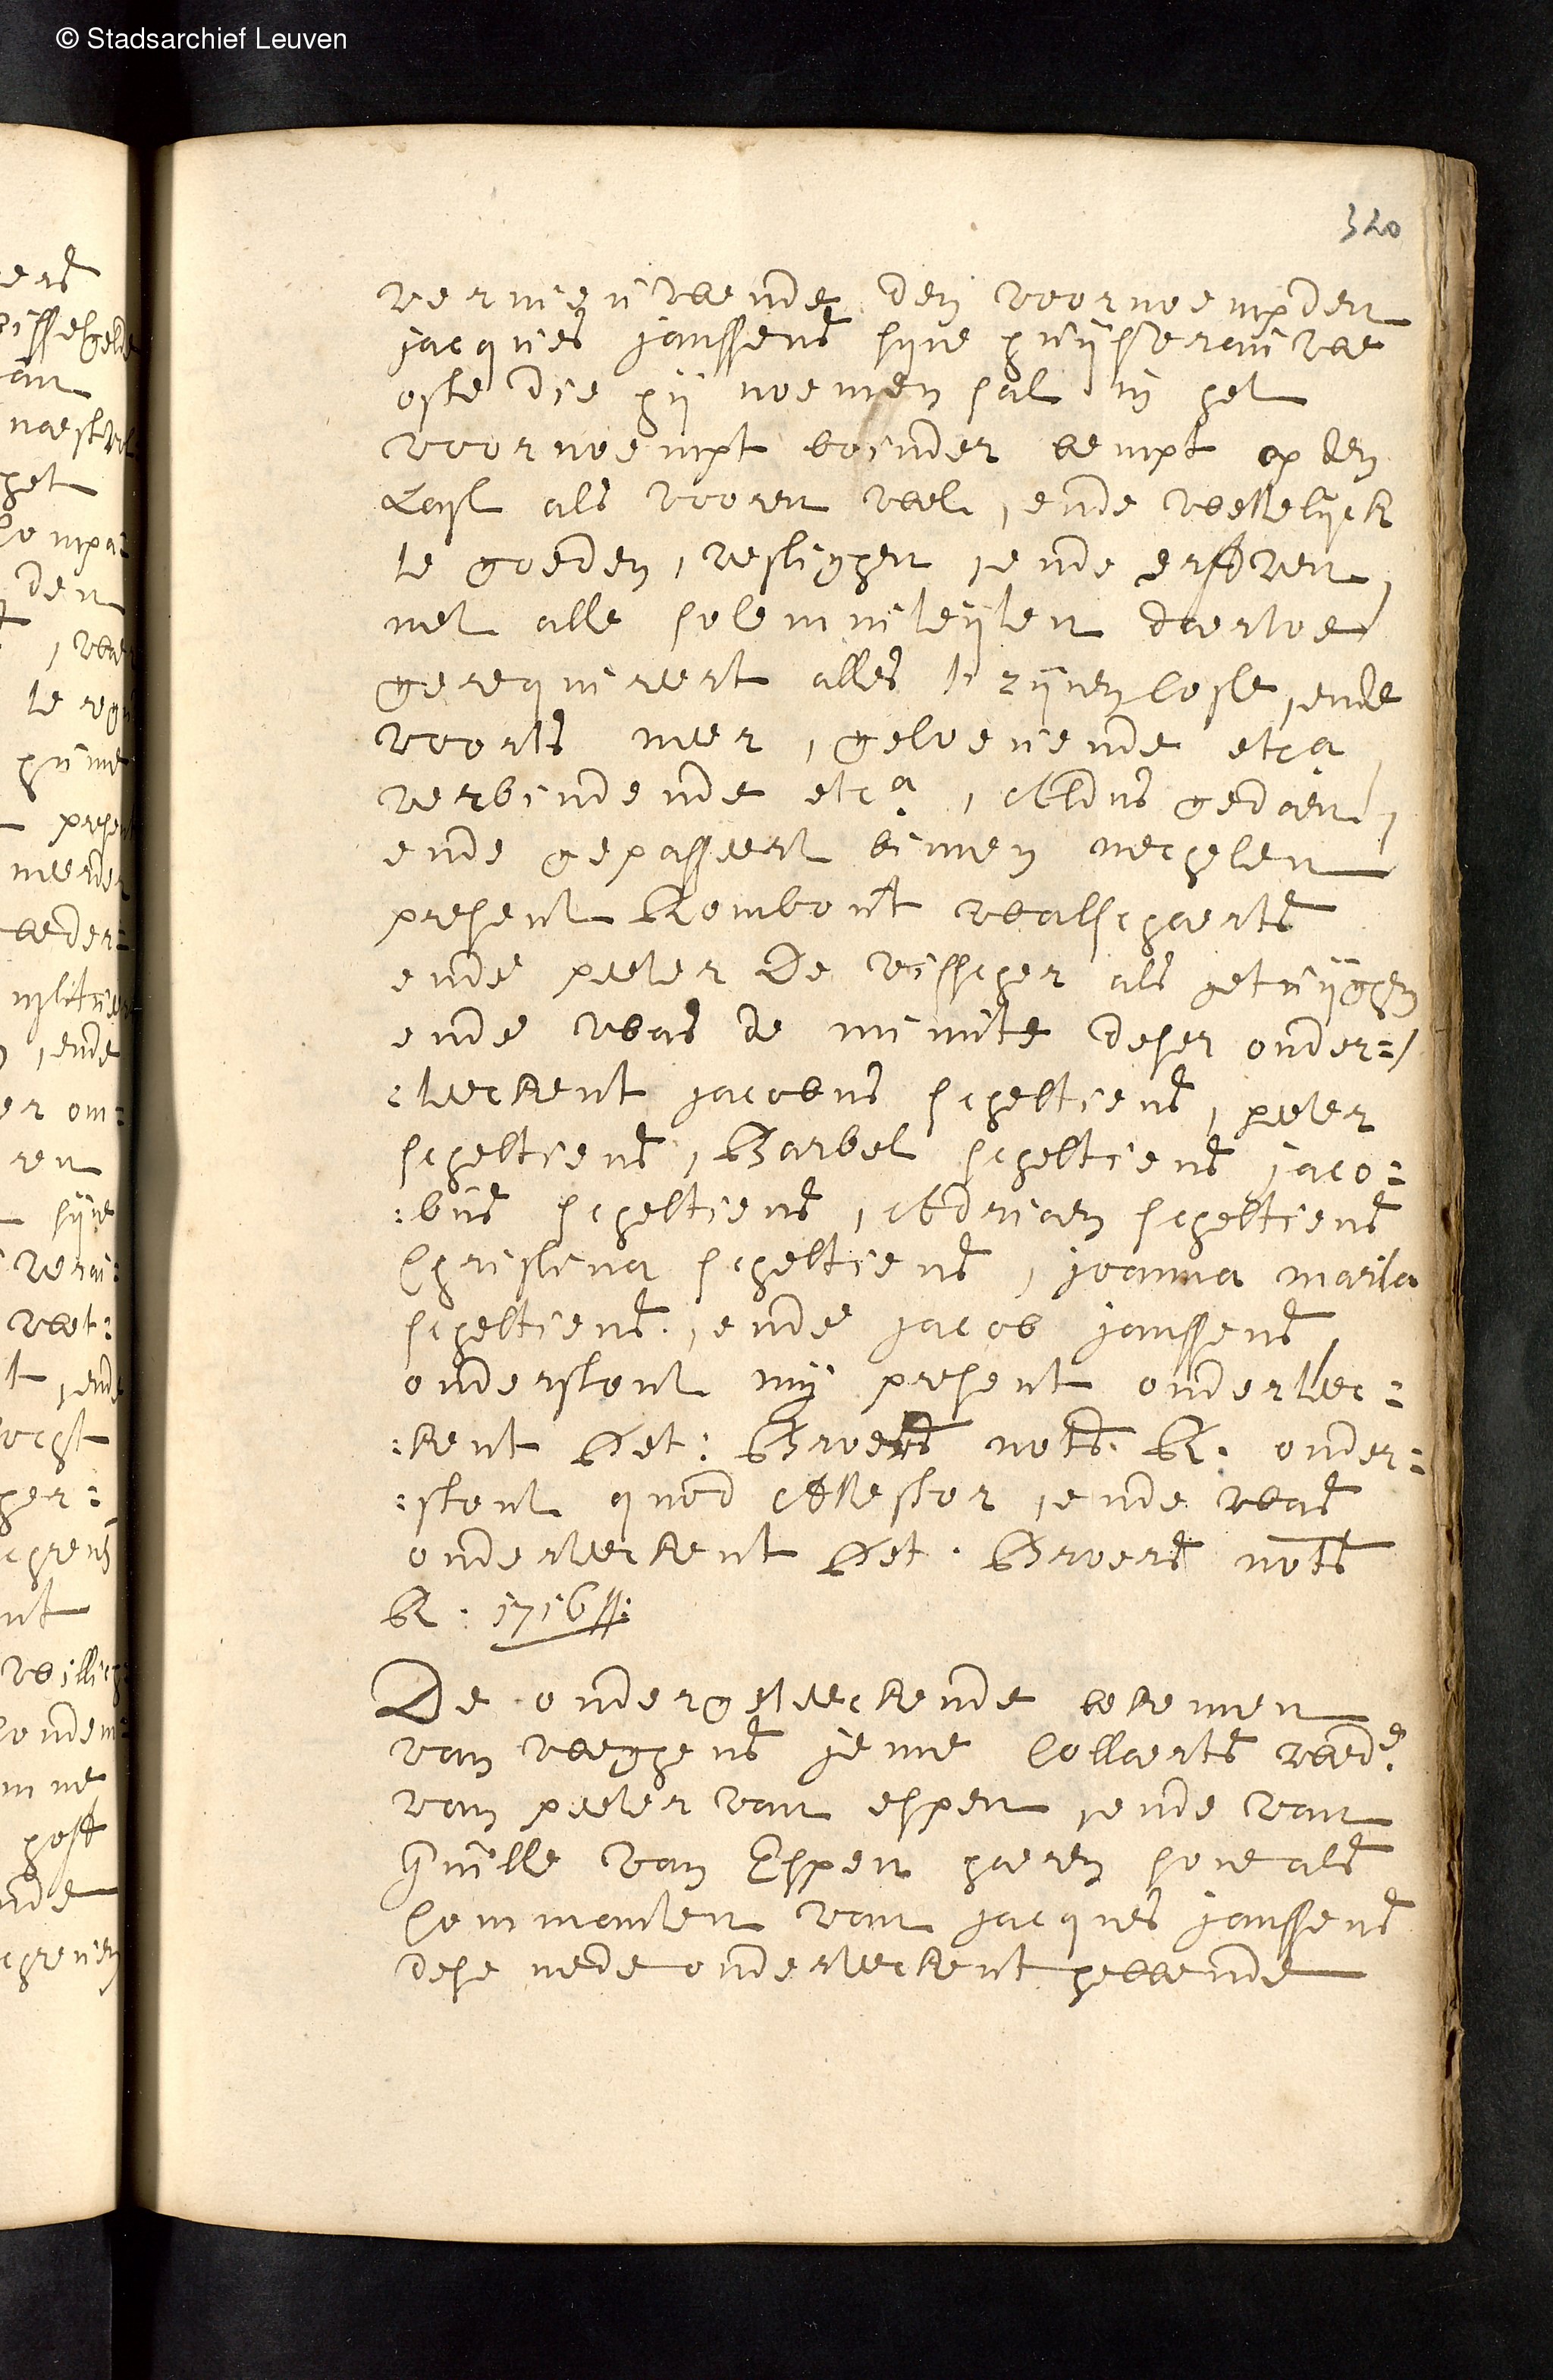 © Stadsarchief Leuven
320
vernieuwende den voornoempden
jacques janssens syne huijsvrauwe
ofte die hij noemen sal in het
voornoempt boinder bempt op den
Last als vooren wel, ende wettelijck
te goeden, vestighen, ende erfven,
met alle solemniteijten daertoe
gerequireert alles t' zijnen coste, ende
voorts meer, geloevende etca
verbindende etca, Aldus gedaen,
ende gepasseert binnen mechelen
present Rombout walschaerts
ende peeter De visscher als getuijghen
ende was de minute deser onder=
:teeckent jacobus scheltiens, peeter
scheltiens, Barbel scheltiens jaco=
:bus scheltiens, Adriaen scheltiens
Christina scheltiens, joanna maria
scheltiens, ende jacob janssens
onderstont mij present ondertee=
:kent Pet: Broers nots. R. onder=
:stont quod Attestor, ende was
onderteeckent Pet. Broers nots
R. 1716
De ondergeteeckende bekennen
van weghens jenne Collaerts wede.
van peeter van espen, ende van
Guille van Espen haeren sone als
Commanten van jacques janssens
dese mede onderteeckent hebbende